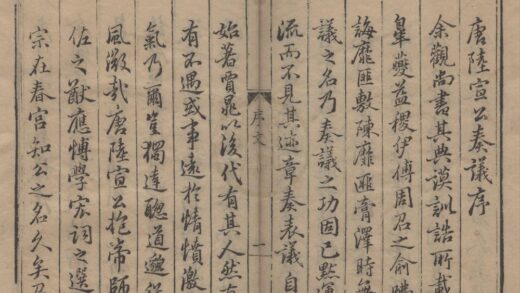 唐陸宣公奏議序
余觀尚書其典謨訓誥所載
皋夔益稷伊傅周召之俞
誨靡匪敷陳靡匪膏澤時無
議之名乃奏議之功固已默
流而不見其迹章奏表議自
序文
一
始著賈晁以後代有其人然
有不遇或事遠於情憤激
氣乃爾豈獨達聰道邈
風微哉唐陸宣公抱帝師
佐之猷應博學宏詞之選
宗在春宮知公之名久矣